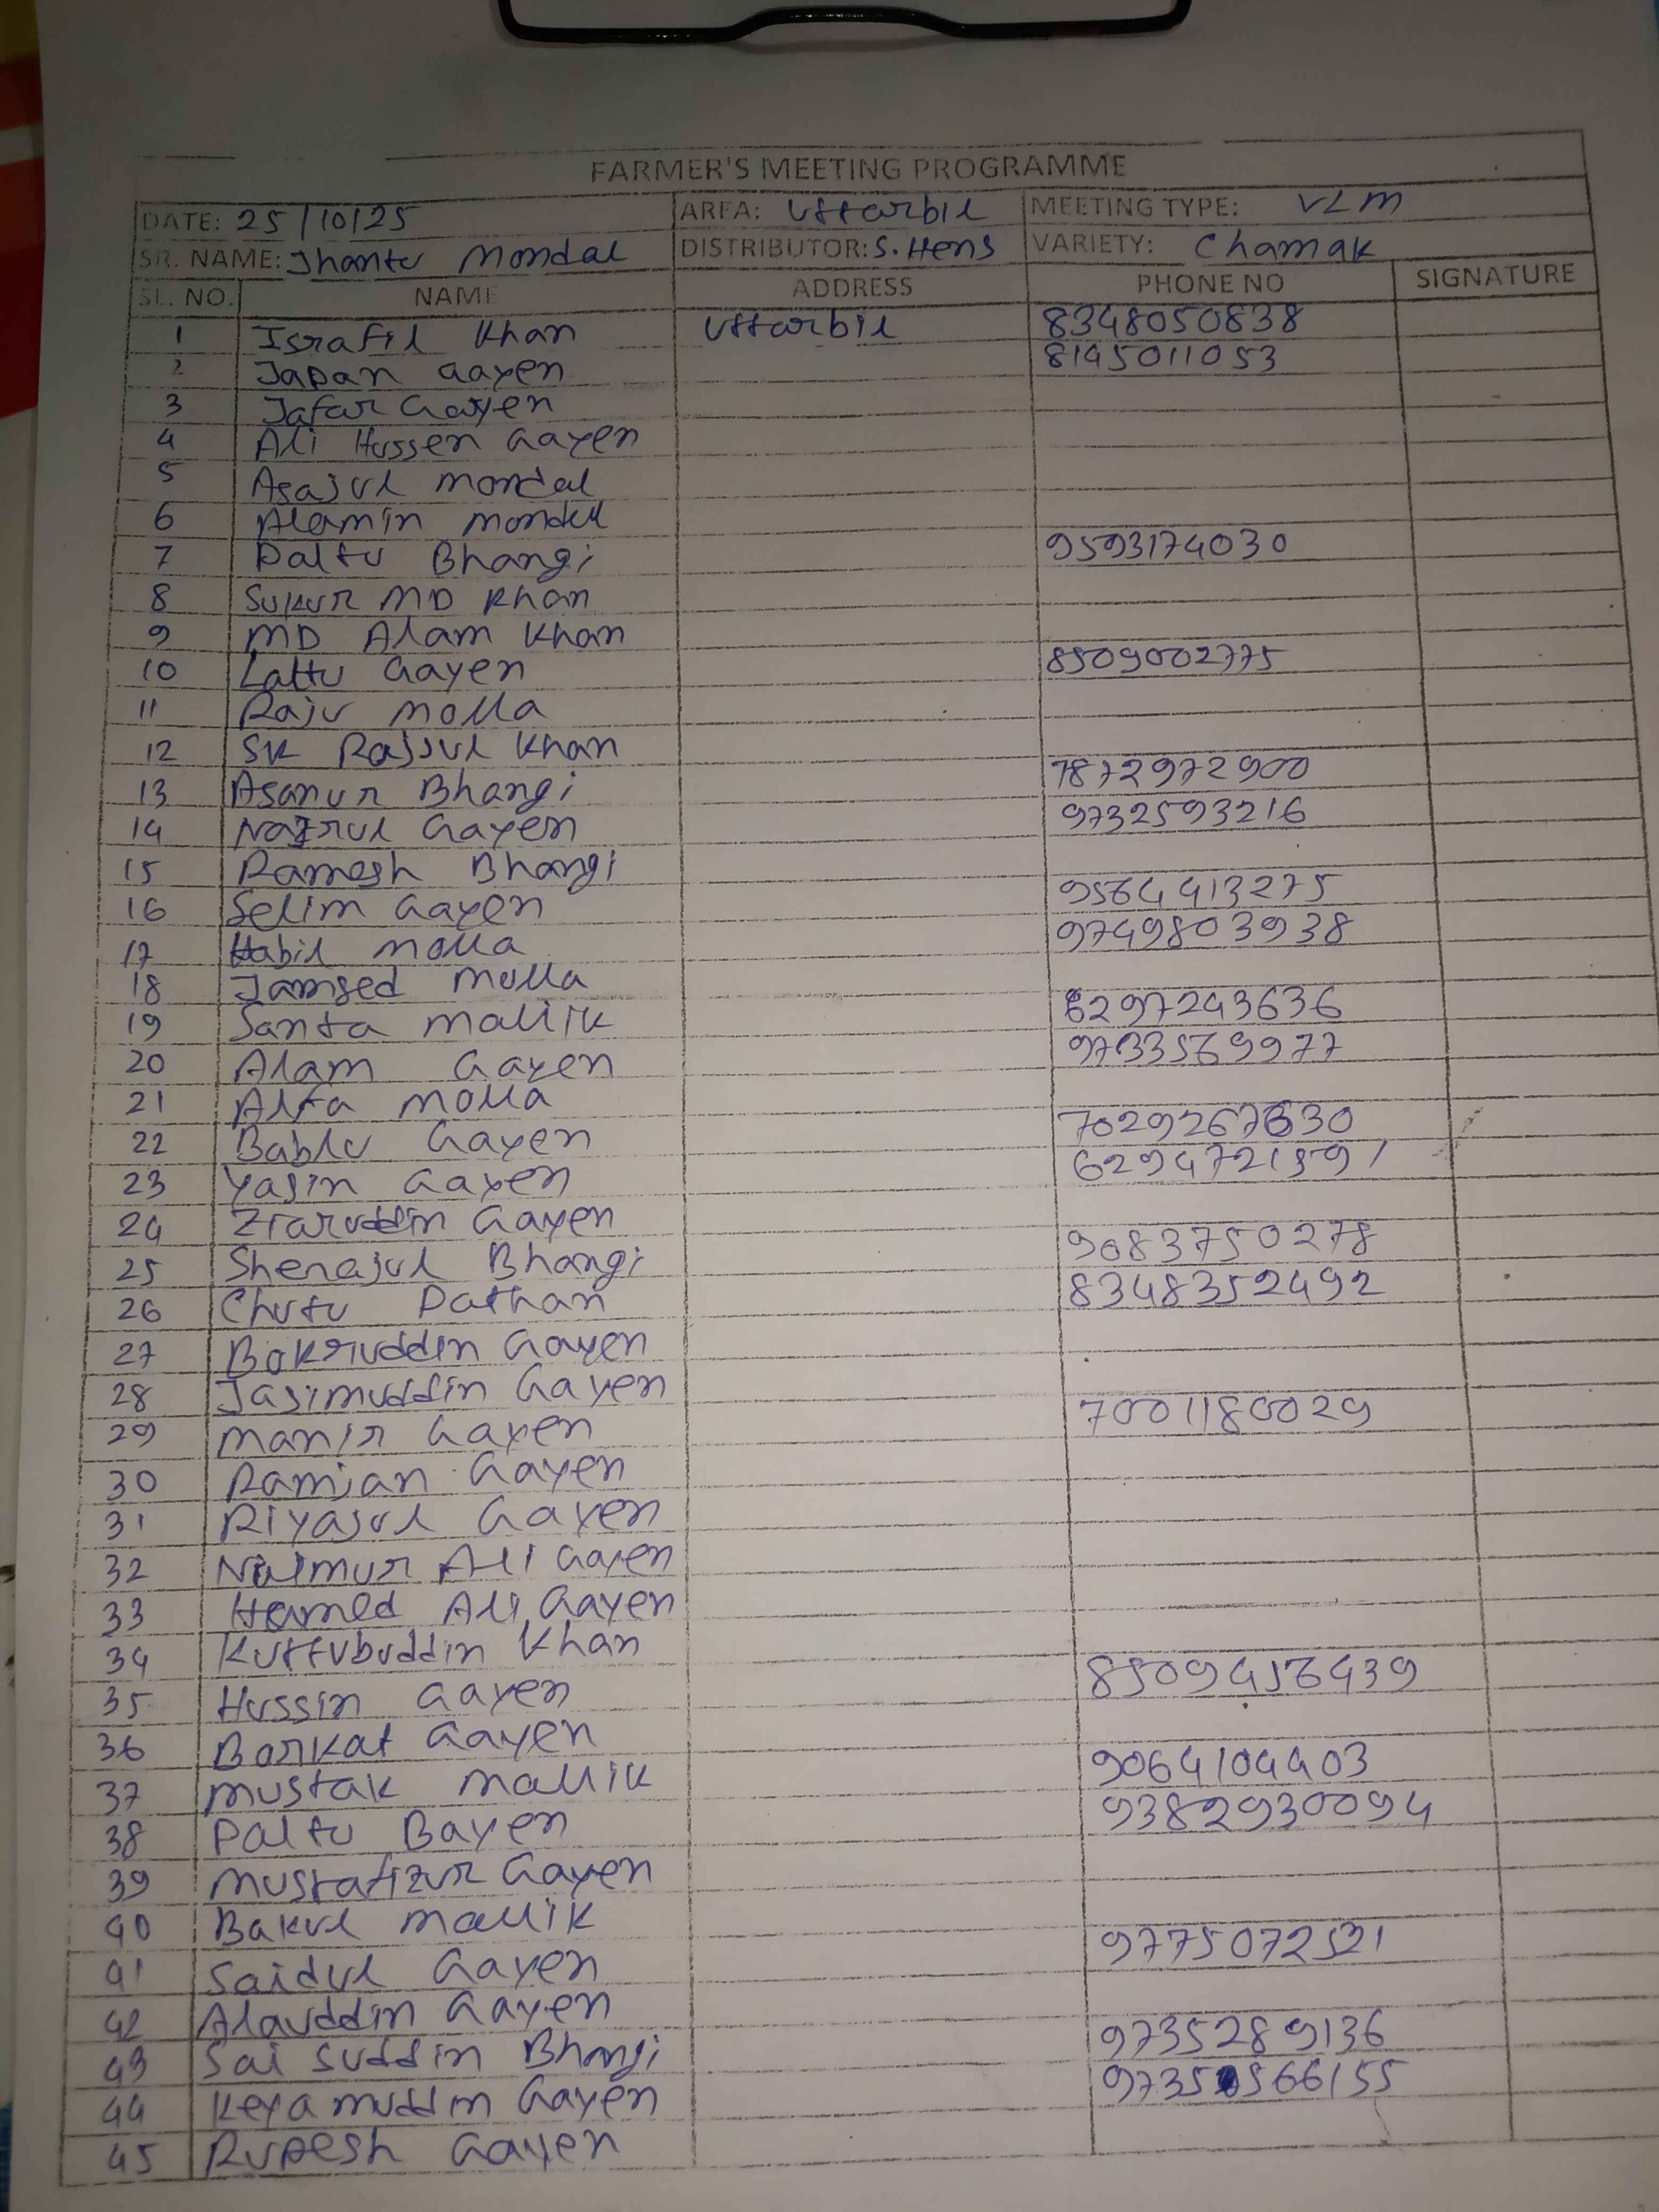 FARMER'S MEETING PROGRAMME
DATE: 25/10/25 AREA: Uttarbil MEETING TYPE: VLM
SR. NAME: Jhantu Mondal DISTRIBUTOR: S. Hens VARIETY: Chamak
SL. NO. NAME ADDRESS PHONE NO SIGNATURE
1 Israfil Khan Uttarbil 8348050838
2 Japan Gayen 8145011053
3 Jafar Gayen
4 Ali Hussen Gayen
5 Asajul Mondal
6 Alamin Mondul
7 Paltu Bhangi 9593174030
8 Sukur MD Khan
9 MD Alam Khan
10 Lattu Gayen 8509002775
11 Raju Molla
12 SK Rajjul Khan
13 Asanur Bhangi 7872972900
14 Nazrul Gayen 9732593216
15 Ramesh Bhangi
16 Selim Gayen 9564413275
17 Habil Molla 9749803938
18 Jamsed Molla
19 Santa Mallik 6297243636
20 Alam Gayen 9733569977
21 Alfa Molla
22 Bablu Gayen
23 Yasin Gayen
24 Ziaruddin Gayen
25 Sherajul Bhangi 9083750278
26 Chutu Pathan 8348352492
27 Bakruddin Gayen
28 Jasimuddin Gayen
29 Manir Gayen 7001180029
30 Ramjan Gayen
31 Riyajul Gayen
32 Naimur Ali Gayen
33 Hamed Ali Gayen
34 Kuttubuddin Khan
35 Hussin Gayen 8509456439
36 Barkat Gayen
37 Mustak Mallik 9064104403
38 Paltu Bayen 9382930094
39 Mustafizur Gayen
40 Bakul Mallik
41 Saidul Gayen 9775072521
42 Alauddin Gayen
43 Sai Suddin Bhangi 9735289136
44 Keyamuddin Gayen
45 Rupesh Gayen